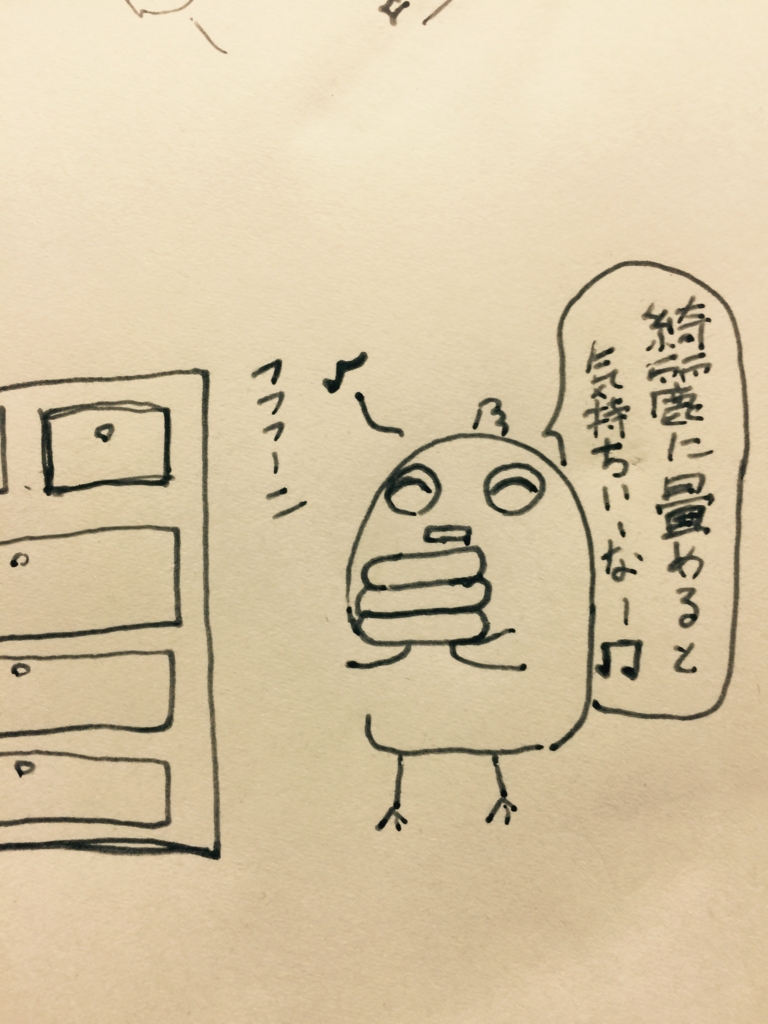 綺麗に畳めると
気持ちいいなー♫
フフフーン♪